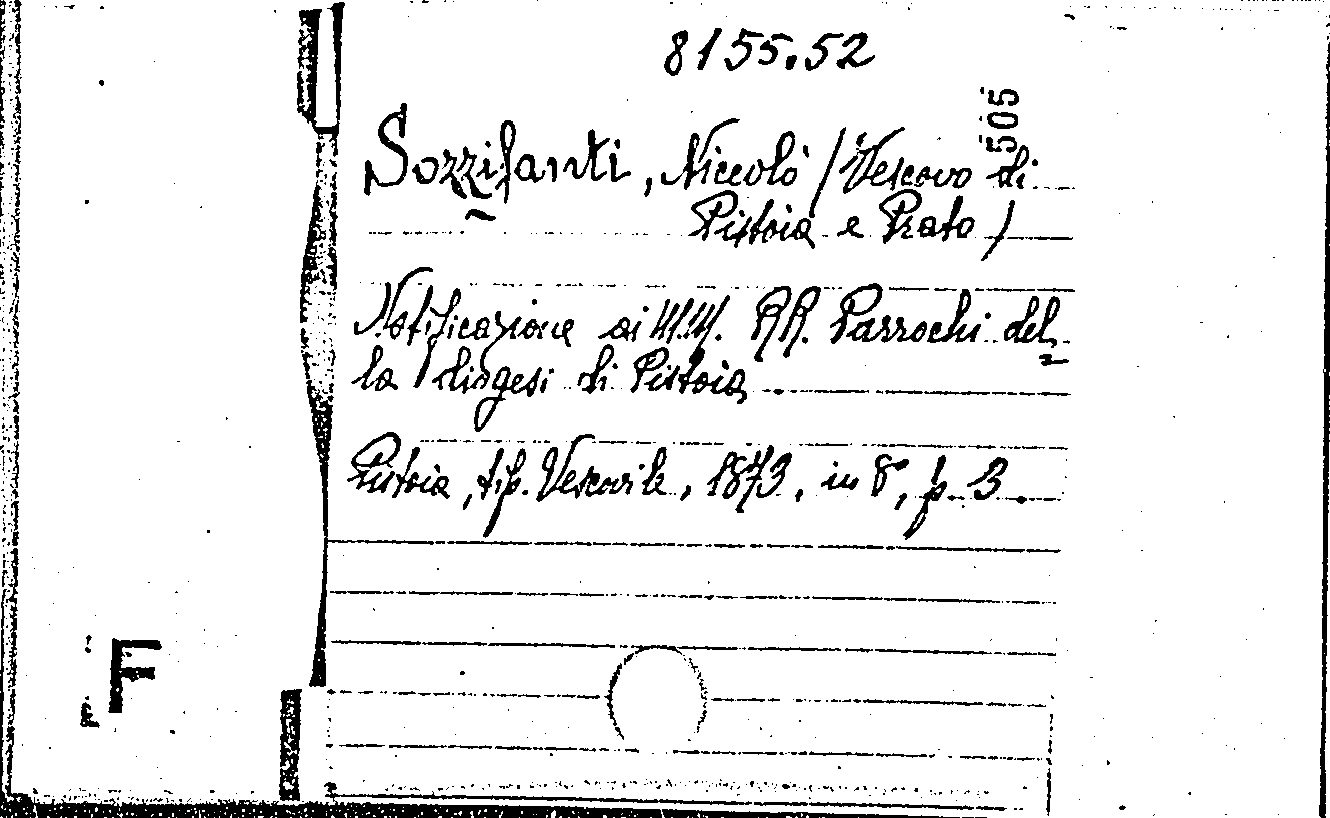 8155.52
505
Sozzifanti, Niccolò (Vescovo di
Pistoia e Prato)
Notificazione ai M.M. RR. Parrochi del
la diogesi di Pistoia
Pistoia, tip. Vescovile, 1873, in 8°, p. 3.
F